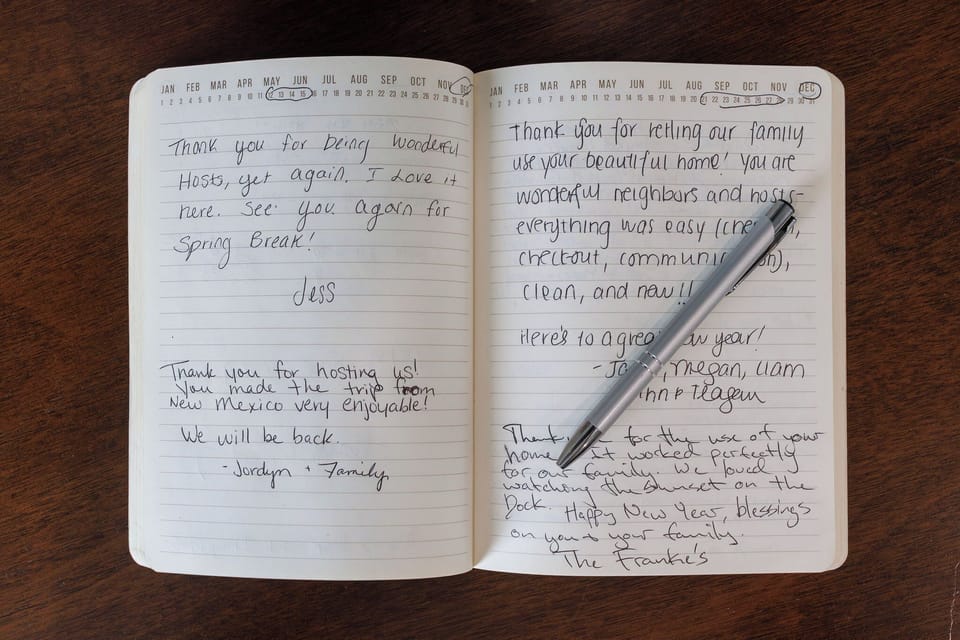 JAN FEB MAR APR MAY JUN JUL AUG SEP OCT NOV DEC
1 2 3 4 5 6 7 8 9 10 11 12 13 14 15 16 17 18 19 20 21 22 23 24 25 26 27 28 29 30 31
Thank you for being wonderful
Hosts, yet again. I Love it
here. See you again for
Spring Break!
Jess
Thank you for hosting us!
You made the trip from
New Mexico very enjoyable!
We will be back.
- Jordyn + Family
JAN FEB MAR APR MAY JUN JUL AUG SEP OCT NOV DEC
1 2 3 4 5 6 7 8 9 10 11 12 13 14 15 16 17 18 19 20 21 22 23 24 25 26 27 28 29 30 31
Thank you for letting our family
use your beautiful home! You are
wonderful neighbors and hosts-
everything was easy
checkout,
clean, and new!!
Here's to a great year!
- megan, Liam
Teagan
for the use of your
home it worked perfectly
for our family. We loved
watching the sunset on the
Dock. Happy New Year, blessings
on you & your family.
The Frankie's